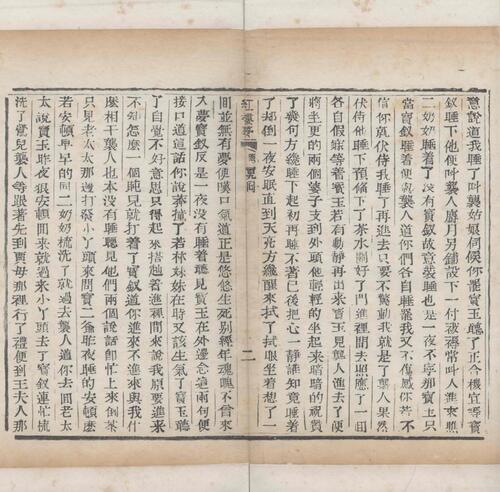 意說道我睡了叫襲姑娘伺候你罷寶玉聽了正合機宜等寶
釵睡下他便叫襲人麝月另鋪設下一付被褥常叫人進來瞧
二奶奶睡着了沒有寶釵故意裝睡也是一夜不寧那寶玉只
當寶釵睡着便與襲人道你們各自睡罷我又不傷感你若不
信你就伏侍我睡了再進去只要不驚動我就是了襲人果然
伏侍他睡下預備下了茶水關好了門進裡間去照應了一回
各自假寐等着寶玉若有動靜再出來寶玉見襲人進去了便
將坐更的兩個婆子支到外頭他輕輕的坐起來暗暗的祝贊
了幾句方纔睡下起初再睡不著已後把心一靜誰知竟睡着
了却倒一夜安眠直到天亮方纔醒來拭了拭眼坐着想了一
紅樓夢 二
回並無有夢便嘆口氣道正是悠悠生死別經年魂魄不曾來
入夢寶釵反是一夜沒有睡着聽見寶玉在外邊念這兩句便
接口道這話你說莽撞了若林妹妹在時又該生氣了寶玉聽
了自覺不好意思只得起來搭趁着進裡間來說我原要進來
不知怎麼一個盹兒就打着了寶釵道你進來不進來與我什
麼相干襲人也本沒有睡聽見他們兩個說話卽忙上來倒茶
只見老太太那邊打發小丫頭來問寶二爺昨夜睡的安頓麼
若安頓早早的同二奶奶梳洗了就過去襲人道你去回老太
太說寶玉昨夜狠安頓回來就過來小丫頭去了寶釵連忙梳
洗了鶯兒襲人等跟著先到賈母那裡行了禮便到王夫人那